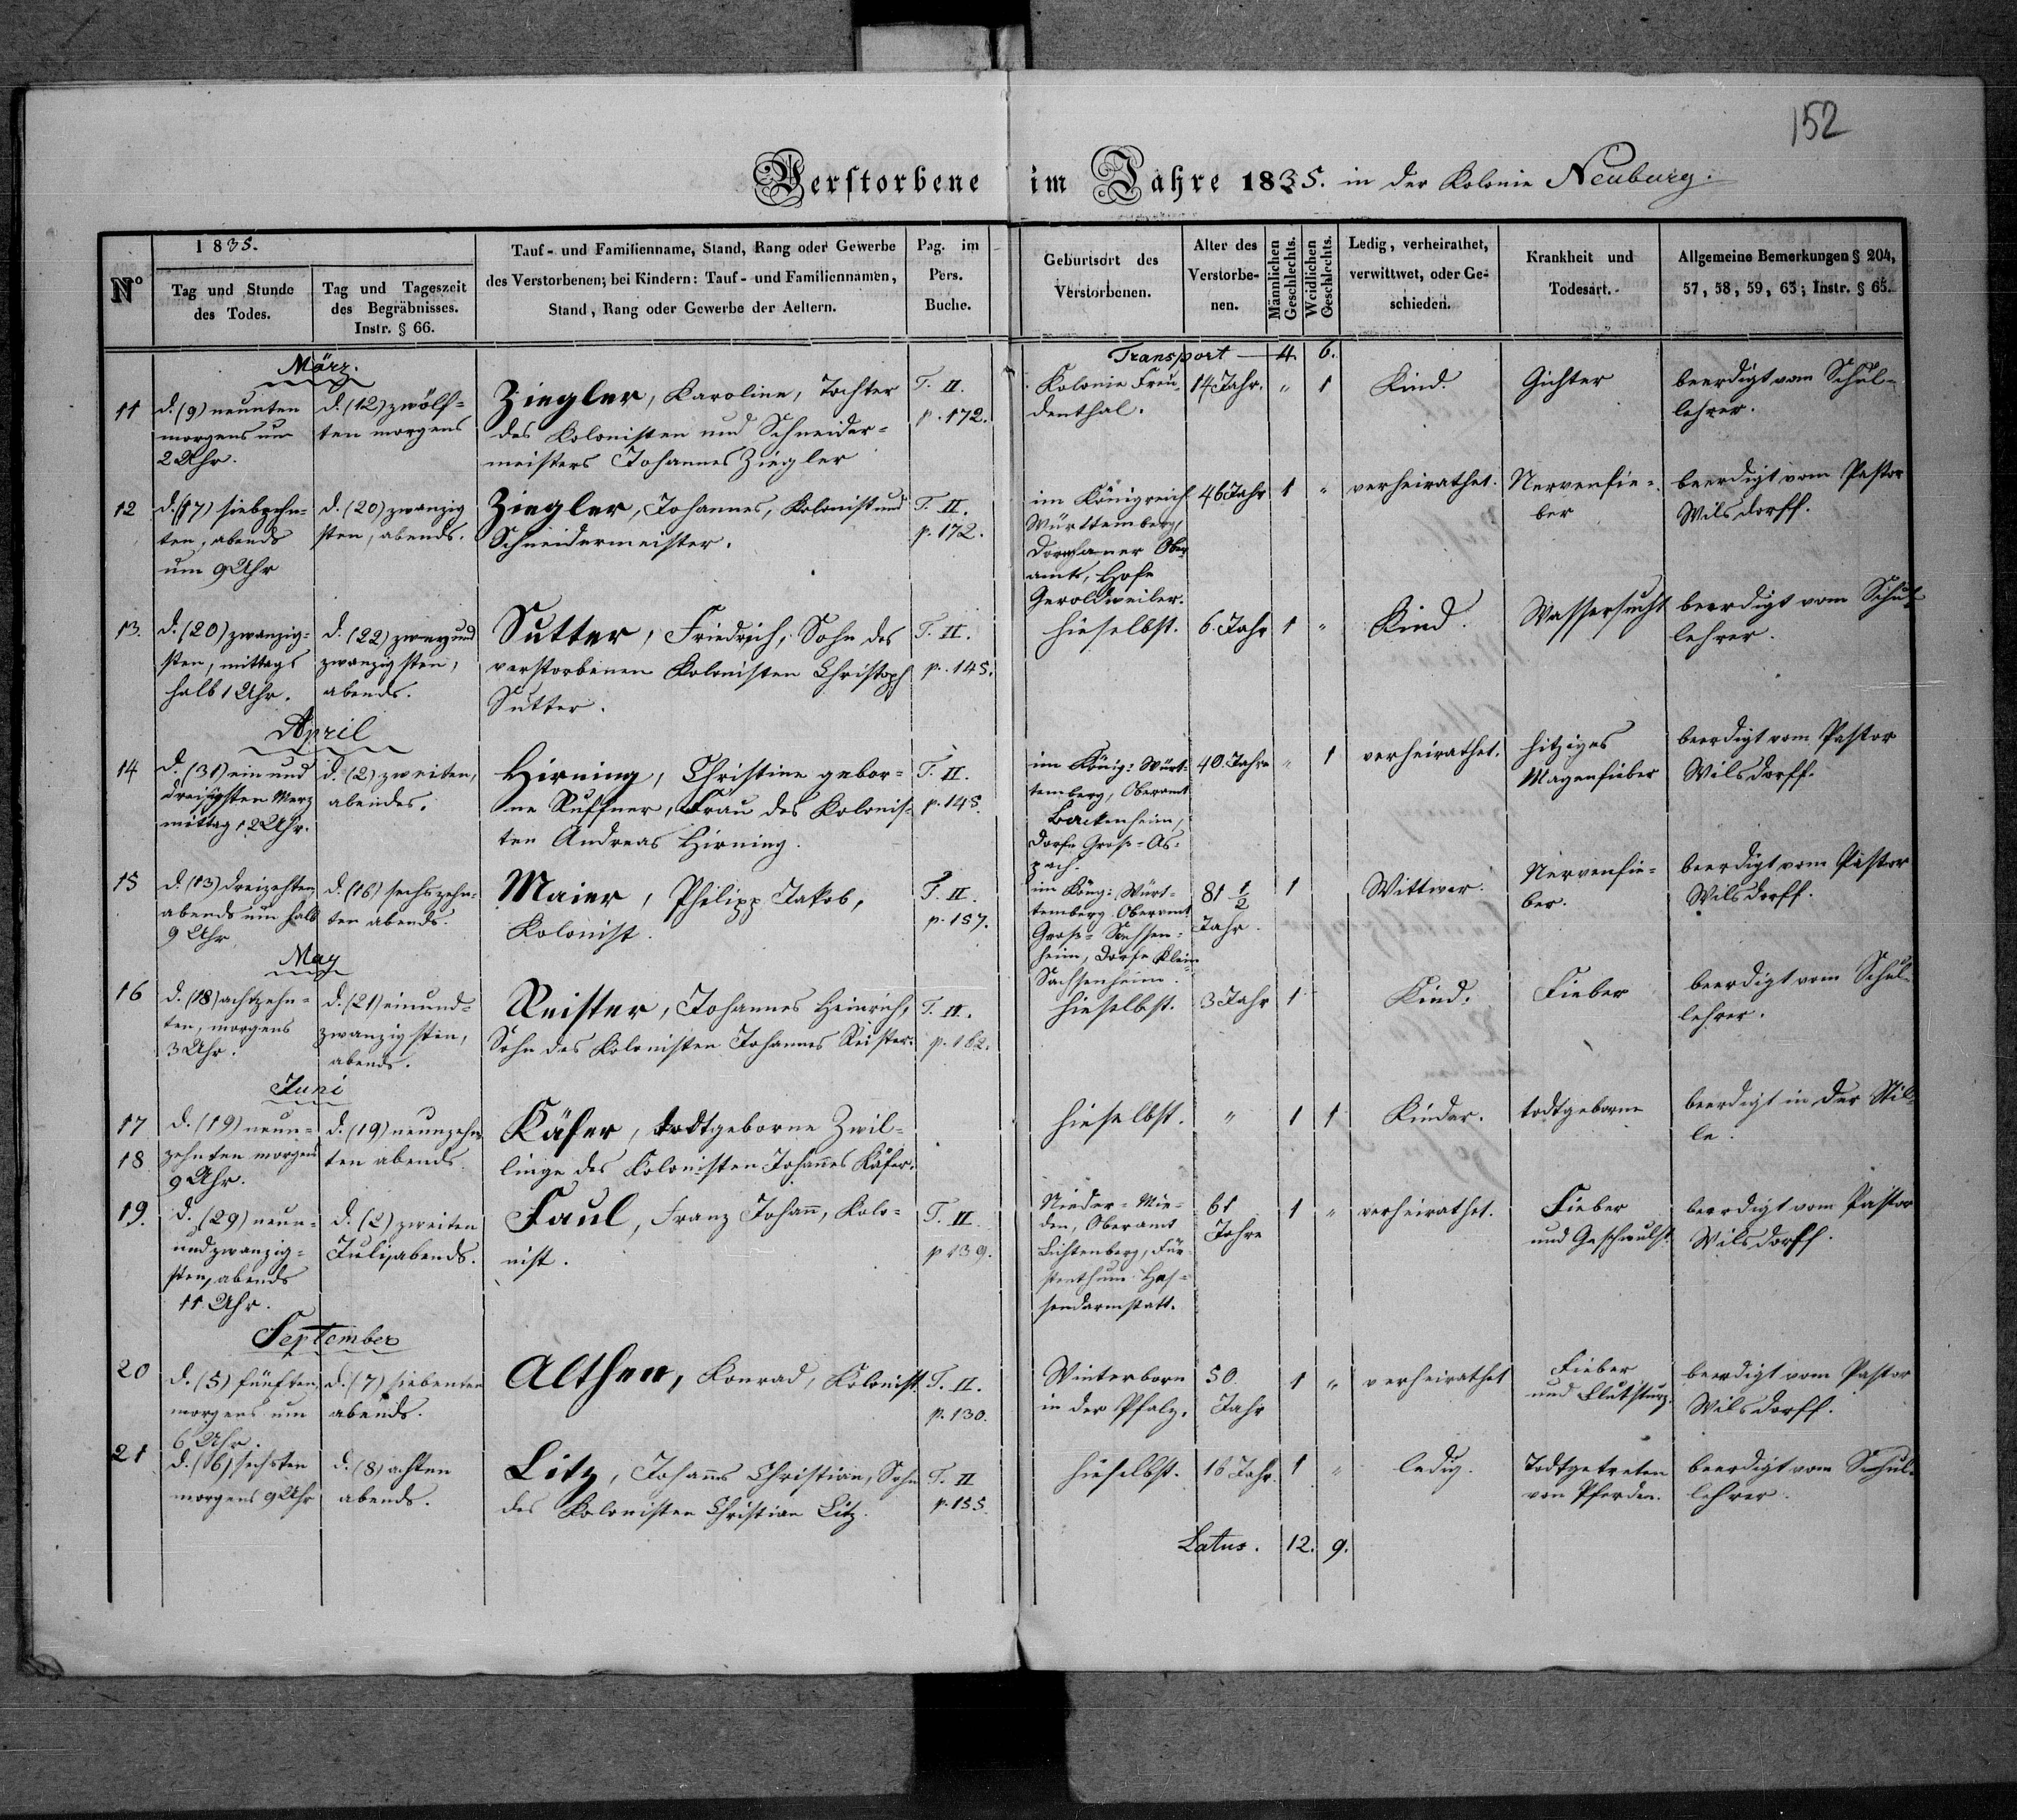 152
Verstorbene im Jahre 1835. in der Kolonie Neuburg.
N°
1835.
Tag und Stunde
des Todes.
Tag und Tageszeit
des Begräbnisses.
Instr. § 66.
Tauf- und Familienname, Stand, Rang oder Gewerbe
des Verstorbenen; bei Kindern: Tauf- und Familiennamen,
Stand, Rang oder Gewerbe der Aeltern.
Pag. im
Pers.
Buche.
Geburtsort des
Verstorbenen.
Alter des
Verstorbe-
nen.
Männlichen
Geschlechts.
Weiblichen
Geschlechts.
Ledig, verheirathet,
verwittwet, oder Ge-
schieden.
Krankheit und
Todesart.
Allgemeine Bemerkungen § 204,
57, 58, 59, 63; Instr. § 65.
Transport — 4. 6.
März.
11
d. (9) neunten
morgens um
2 Uhr.
d. (12) zwölf-
ten morgens
Ziegler, Karoline, Tochter
des Kolonisten und Schneider-
meisters Johannes Ziegler
T. II.
p. 172.
Kolonie Freu-
denthal.
14 Jahr.
" 1
Kind.
Gichter
beerdigt vom Schul-
lehrer.
12
d. (17) siebzehn-
ten, abends
um 9 Uhr
d. (20) zwanzig
sten, abends.
Ziegler, Johannes, Kolonist und
Schneidermeister.
T. II.
p. 172.
im Königreich
Württemberg,
Dornhaner Ober
amts, Hofe
Geroldweiler.
46 Jahr
1 "
verheirathet.
Nervenfie-
ber
beerdigt vom Pastor
Wilsdorff.
13.
d. (20) zwanzig-
sten, mittags
halb 1 Uhr.
d. (22) zwey und
zwanzigsten,
abends.
Sutter, Friedrich, Sohn des
verstorbenen Kolonisten Christoph
Sutter.
T. II.
p. 145.
hieselbst.
6. Jahr
1 "
Kind.
Wassersucht
beerdigt vom Schul-
lehrer.
April
14
d. (31) ein und
dreißigsten Merz
mittag 12 Uhr.
d. (2) zweiten,
abendes.
Hirning, Christine gebor-
ne Ruffner, Frau des Kolonis-
ten Andreas Hirning.
T. II.
p. 145.
im König: Würt-
temberg, Oberamt
Backenheim,
Dorfe Gros-As-
pach.
40. Jahre
" 1
verheirathet.
hitziges
Magenfieber
beerdigt vom Pastor
Wilsdorff.
15
d. (13) dreizehten,
abends um halb
9 Uhr
d. (16) sechszehn-
ten abends.
Maier, Philipp Jakob,
Kolonist.
T. II.
p. 157.
im Köng: Würt-
temberg Oberamt
Gros-Sachsen-
heim, Dorfe Klein
Sachsenheim.
81 1/2
Jahr.
1
Wittwer.
Nervenfie-
ber.
beerdigt vom Pastor
Wilsdorff.
May
16
d. (18) achtzehn-
ten, morgens
3 Uhr.
d. (21) einund-
zwanzigsten,
abends.
Reister, Johannes Heinrich,
Sohn des Kolonisten Johannes Reister.
T. II.
p. 162.
hieselbst.
3 Jahr
1
Kind.
Fieber
beerdigt vom Schul-
lehrer.
Juni
17
18
d. (19) neun-
zehnten morgens
9 Uhr.
d. (19) neunzehn-
ten abends.
Käfer, todtgeborne Zwil-
linge des Kolonisten Johannes Käfer.
hieselbst.
"
1 1
Kinder.
todtgeborne
beerdigt in der Stil-
le.
19.
d. (29) neun-
und zwanzig-
sten, abends
11 Uhr.
d. (2) zweiten
Juli, abends.
Faul, Franz Johann, Kolo-
nist.
T. II
p 139.
Nieder-Mie-
den, Oberamt
Lichtenberg, Für-
stenthum Hes-
sendarmstatt.
61
Jahre
1 "
verheirathet.
Fieber
und Geschwulst.
beerdigt vom Pastor
Wilsdorff.
September
20
d. (5) fünften,
morgens um
6 Uhr.
d. (7) siebenten
abends.
Althen, Konrad, Kolonist.
T. II.
p. 130.
Winterborn
in der Pfalz.
50.
Jahr
1 "
verheirathet
Fieber
und Blutsturz.
beerdigt vom Pastor
Wilsdorff.
21
d. (6) sechsten
morgens 9 Uhr
d. (8) achten
abends.
Litz, Johanns Christian, Sohn
des Kolonisten Christian Litz.
T. II
p. 155.
hieselbst.
16 Jahr.
1 "
ledig.
Todtgetreten
von Pferden.
beerdigt vom Schul-
lehrer.
Latus. 12. 9.